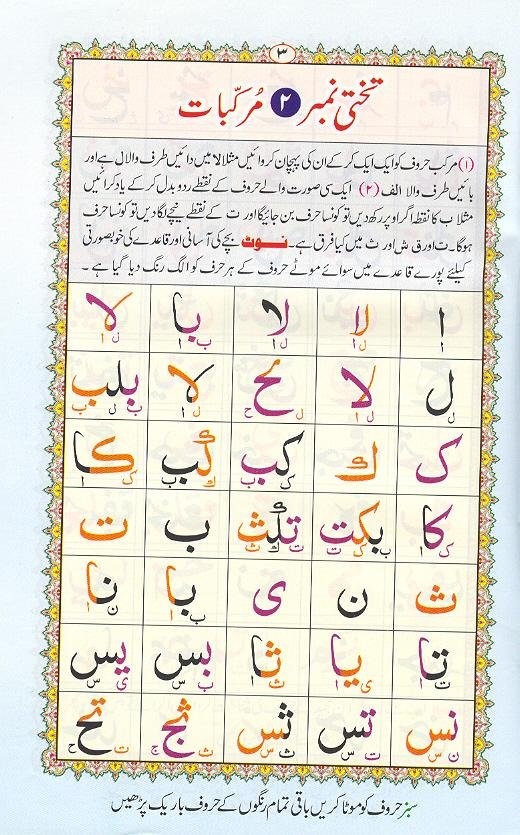 ۳
تختی نمبر ۲ مُرکّبات
(۱) مرکب حروف کو ایک ایک کر کے ان کی پہچان کروائیں مثلا لا میں دائیں طرف والا ل ہے اور
بائیں طرف والا الف (۲) ایک سی صورت والے حروف کے نقطے ردو بدل کر کے یاد کرائیں
مثلا ب کا نقطہ اگر اوپر رکھ دیں تو کونسا حرف بن جائیگا اور ت کے نقطے نیچے لگا دیں تو کونسا حرف
ہوگا۔ ت اور ق ش اور ث میں کیا فرق ہے۔ نوٹ بچے کی آسانی اور قاعدے کی خوبصورتی
کیلئے پورے قاعدے میں سوائے موٹے حروف کے ہر حرف کو الگ رنگ دیا گیا ہے۔
ا لا لا با لا
ا ل ا ل ا ب ا ل ا
ل لا لح لا بلب
ل ل ا ل ح ل ا ب ل ب
ک ك کب كب کا
ک ب ك ب ک ا
کا بکت تلث ب ت
ک ا ب ک ت ت ل ث
ث ن ی با نا
ب ا ن ا
تا یا ثا بس یس
ت ا ی ا ث ا ب س ی س
نس تس ثس ثج تح
ن س ت س ث س ث ج ت ح
سبز حروف کو موٹا کریں باقی تمام رنگوں کے حروف باریک پڑھیں